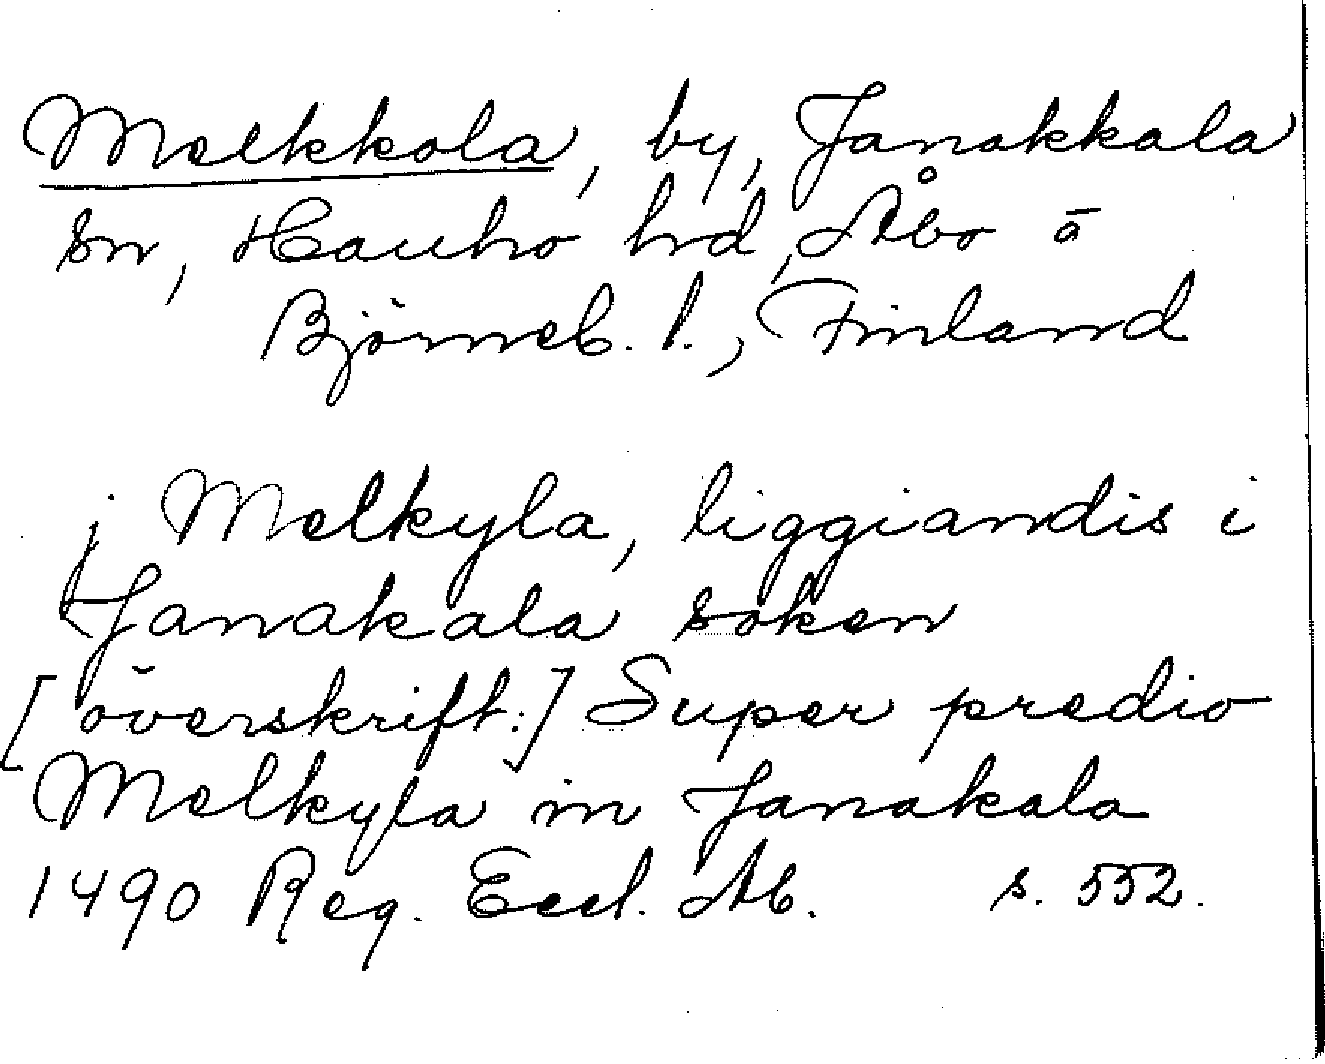 Melkkola, by, Janakkala
sn, Hauho hrd, Åbo o
Björneb. l., Finland
j Melkyla, liggiandis i
Janakala soken
[överskift:] Super predio
Melkyla in Janakala
1490 Reg. Eccl. Ab. s. 552.